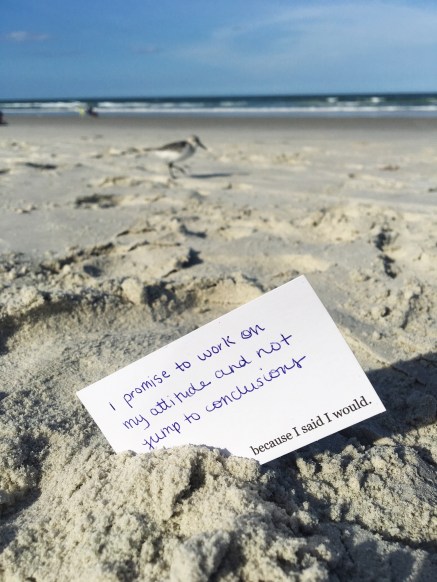 I promise to work on
my attitude and not
jump to conclusions
because I said I would.